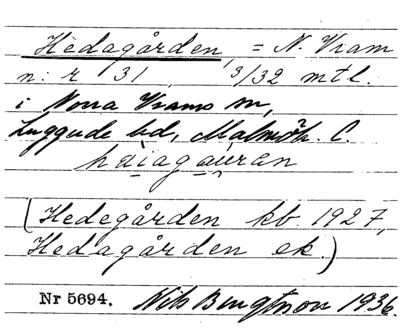 Hedagården, = N. Vram
n:r 31, 3/32 mtl.
i Norra Vrams sn,
Luggude hd, Malmöh. L.
haiagauran
(Hedegården kb. 1927,
Hedagården ek.)
Nr 5694. Nils Bengtsson 1936.